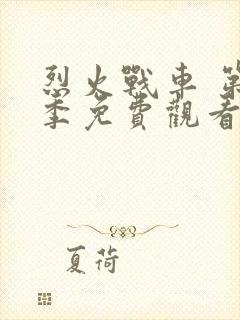 烈火戰車 第
季免費觀看
夏荷